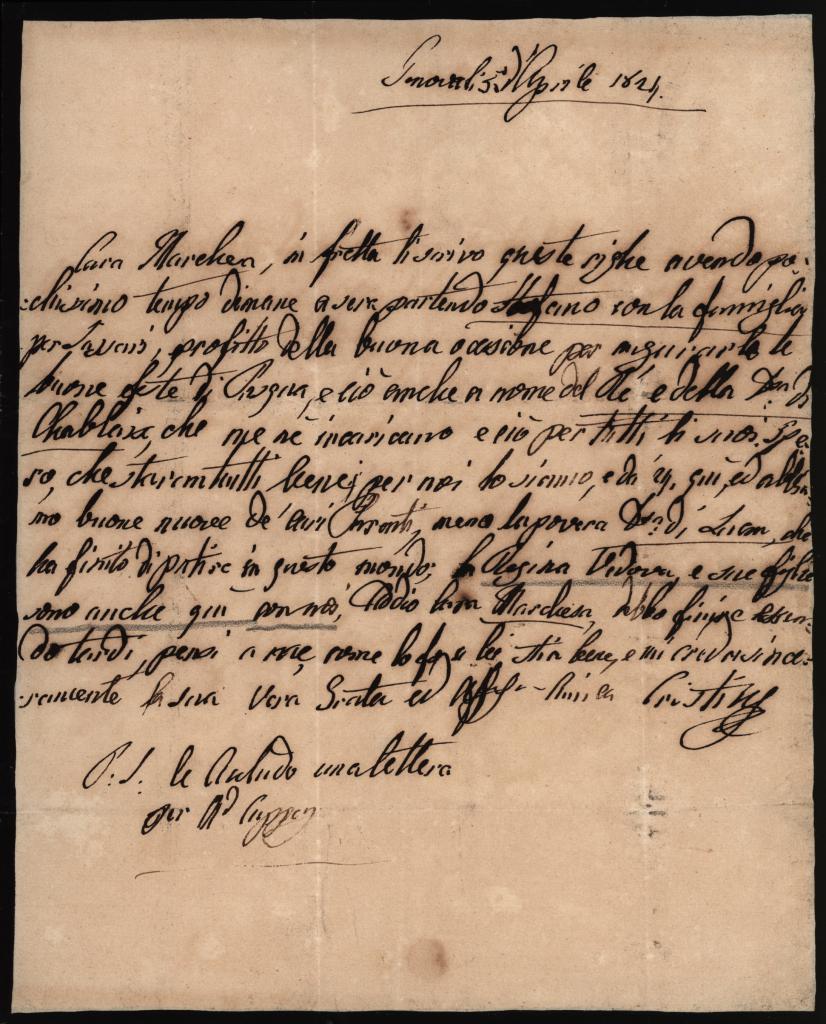 Genova li 5 d'Aprile 1824.
Cara Marchesa, in fretta li scrivo queste righe avendo po-
:chissimo tempo dimane a sera partendo Stefano con la famiglia
per, profitto della buona occasione per augurarle le
buone feste di Pasqua, e ciò anche a nome del Ré e della D.ssa di
Chablais, che me ne incaricano e ciò per tutti li suoi. Spe-
ro, che staran tutti bene; per noi lo siamo, e dà qui, ed abbia-
mo buone nuove de' cari Parenti, meno la povera D.ssa di Lucca, che
ha finito di patire in questo mondo; la Regina Vedova, e sue figlie
sono anche quì con noi, Addio Cara Marchesa, debbo finire essen-
do tardi, pensi a me, come lo fò a lei stia bene, e mi creda since-
:ramente la sua Vera Grata ed Aff.ma Amica Cristina
P: S: le Acludo una lettera
per